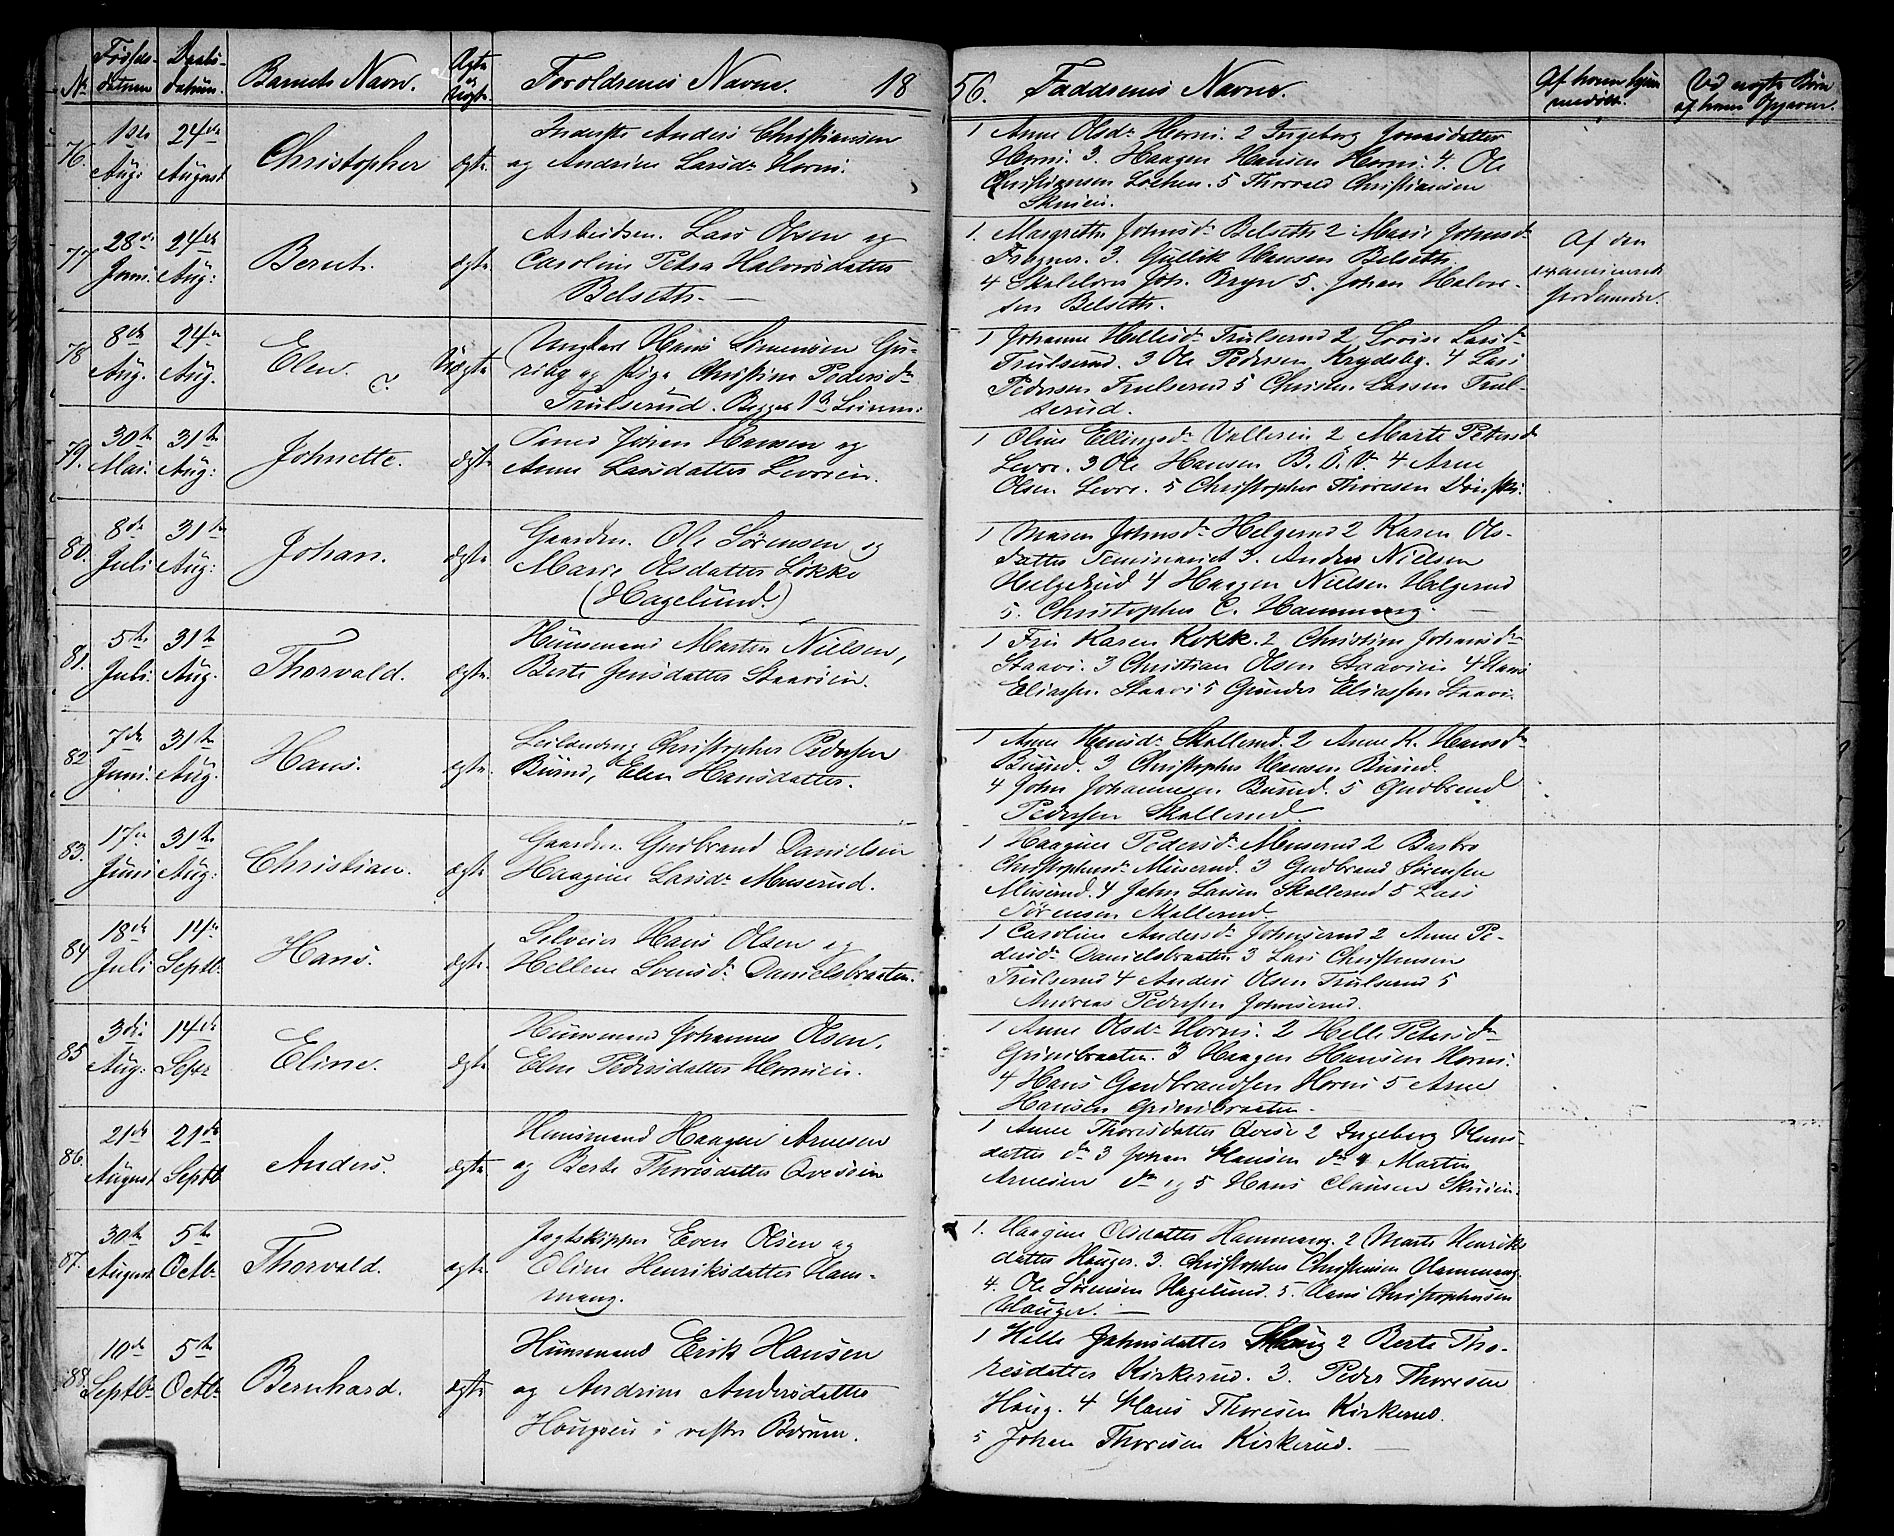 No Fødsels- datum Daabs- datum. Barnets Navn. Ægte og Uægte. Foroldrenes Navne. 18 56. Faddrenes Navne. Af hvem hjem medøbt.
76. 1ste Aug: 24de August Christopher ægte.
Inderste Anders Christiansen
og Andrine Larsdr Horni.
1 Anne Olsdr Horni. 2 Ingeborg Jonasdatter
Horni. 3. Haagen Hansen Horni. 4. Ole
Christiansen Løchen. 5 Thorvald Christiansen
Skuien.
77 28de Juni. 24de Aug: Bernt. ægte
Arbeidsm. Lars Olsen og
Caroline Petra Halvorsdatter
Belseth. —
1. Margrethe Johnsdr Belseth 2 Marie Johnsdr
Frogner. 3. Gullik Hansen Belseth.
4 Skolelærer Joh. Bryn 5. Johan Halvor-
sen Belseth.
Af den
examinerede
Jordemoder.
78 8de Aug. 24de Aug. Elen. Uægte
Ungkarl Hans Simensen Gu-
riby og Pige Christine Pedersdr
Trulserud. Begges 1ste Leierm:
1 Johanne Hellesdr Trulserud 2 Lovise Larsdr
Trulserud. 3 Ole Pedersen Krydsby. 4 Lars
Pedersen Trulserud 5 Christen Larsen Trul-
serud.
79. 30te Mai. 31te Aug: Johnette. ægte
Johan Hansen og
Anne Larsdatter Levorein.
1 Oline Ellingsdr Vallerein 2 Marte Petersdr
Levre. 3 Ole Hansen B. Ö. V. 4 Arne
Olsen Levre. 5 Christopher Thoresen Dønski.
80. 8de Juli 31te Aug: Johan. ægte
Gaardm. Ole Sørensen og
Marie Olsdatter Løkke
(Hagelund.)
1 Maren Johnsdr Helgerud 2 Karen Ols-
datter Seminariet 3. Anders Nielsen
Helgerud 4 Haagen Nielsen Helgerud
5. Christopher C. Hammang. —
81. 5te Juli. 31te Aug. Thorvald. ægte
Huusmand Morten Nielsen,
Berte Jensdatter Staavien.
1 Frü Karen Kokk. 2 Christine Johansdr
Staavi. 3 Christian Olsen Staavien 4 Hans
Eliassen Staavi 5 Gunder Eliassen Staavi.
82 7de Juni. 31te Aug. Hans. ægte.
Leilænding Christopher Pedersen
Büsrud, Elen Hansdatter.
1 Anne Hansdr Skollerud. 2 Anne K. Hansdr
Büsrud. 3 Christopher Hansen Büsrud.
4 John Johannesen Büsrud. 5 Gudbrand
Pedersen Skollerud.
83. 17de Juni 31te Aug: Christian. ægte
Gaardm. Gudbrand Danielsen
Haagine Larsdr Muserud.
1 Haagine Pedersdr Muserud 2 Barbro
Christophersdr Muserud. 3 Gudbrand Sørensen
Muserud. 4 John Larsen Skollerud 5 Lars
Sørensen Skollerud
84 18de Juli 14de Septb. Hans. ægte
Selveier Hans Olsen og
Hellene Svensdr Danielsbraaten.
1 Caroline Andersdr Johnsrud 2 Anne Pe-
dersdr Danielsbraaten 3 Lars Christensen
Trulserud 4 Anders Olsen Trulserud 5
Andreas Pedersen Johnsrud.
85 3die Aug: 14de Septr Eline. ægte
Huusmand Johannes Olsen,
Elen Pedersdatter Hornien.
1 Anne Olsdr Horni. 2 Helle Petersdr
Grinibraaten. 3 Haagen Hansen Horni.
4 Hans Gudbrandsen Horni 5 Arne
Hansen Grinibraaten.
86. 21de August 21de Septb Anders. ægte
Huusmand Haagen Arnesen
og Berte Thoresdatter Ovesein
1 Anne Thoresdatter Ovese 2 Ingeborg Hans-
datter do 3 Johan Hansen do 4 Martin
Arnesen do og 5 Hans Clausen Skuien.
87. 30te August 5te Octbr Thorvald. ægte.
Jagtskipper Even Olsen og
Oline Henriksdatter Ham-
mang.
1. Haagine Olsdatter Hammang. 2 Marte Henriks
datter Hauger. 3. Christopher Christensen Hammang.
4. Ole Sørensen Hagelund. 5. Hans Christophersen
Hauger. —
88. 10de Septbr 5te Octbr Bernhard. ægte
Huusmand Erik Hansen
og Andrine Andersdatter
Haugen i vestre Bærum.
1 Helle Johnsdatter Haug 2 Berte Tho-
resdatter Kirkerud. 3. Peder Thoresen
Haug. 4 Hans Thoresen Kirkerud.
5 Johan Thoresen Kirkerud. —